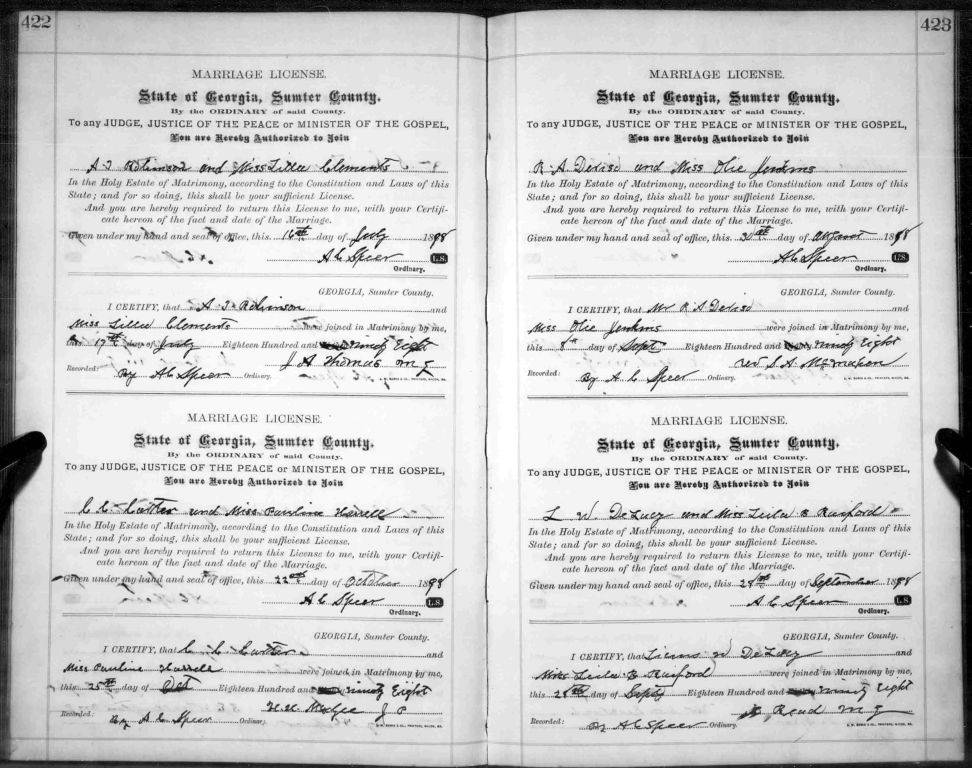 422
MARRIAGE LICENSE.
State of Georgia, Sumter County.
By the ORDINARY of said County.
To any JUDGE, JUSTICE OF THE PEACE or MINISTER OF THE GOSPEL,
You are Hereby Authorized to Join
A J Robinson and Miss Lillie Clements
In the Holy Estate of Matrimony, according to the Constitution and Laws of this
State; and for so doing, this shall be your sufficient License.
And you are hereby required to return this License to me, with your Certifi-
cate hereon of the fact and date of the Marriage.
Given under my hand and seal of office, this 16th day of July 1898
A C Speer L.S.
Ordinary.
GEORGIA, Sumter County.
I CERTIFY, that A J Robinson and
Miss Lillie Clements were joined in Matrimony by me,
this 17th day of July Eighteen Hundred and ninety Eight
J A Thomas M G
Recorded: By A C Speer Ordinary.
MARRIAGE LICENSE.
State of Georgia, Sumter County.
By the ORDINARY of said County.
To any JUDGE, JUSTICE OF THE PEACE or MINISTER OF THE GOSPEL,
You are Hereby Authorized to Join
C C and Miss Pauline Harrell
In the Holy Estate of Matrimony, according to the Constitution and Laws of this
State; and for so doing, this shall be your sufficient License.
And you are hereby required to return this License to me, with your Certifi-
cate hereon of the fact and date of the Marriage.
Given under my hand and seal of office, this 22nd day of October 1898
A C Speer L.S.
Ordinary.
GEORGIA, Sumter County.
I CERTIFY, that C. C. and
Miss Pauline Harrell were joined in Matrimony by me,
this 25th day of Oct Eighteen Hundred and ninety Eight
J P
Recorded: By A C Speer Ordinary.
423
MARRIAGE LICENSE.
State of Georgia, Sumter County.
By the ORDINARY of said County.
To any JUDGE, JUSTICE OF THE PEACE or MINISTER OF THE GOSPEL,
You are Hereby Authorized to Join
R A Deriso and Miss Olie Jenkins
In the Holy Estate of Matrimony, according to the Constitution and Laws of this
State; and for so doing, this shall be your sufficient License.
And you are hereby required to return this License to me, with your Certifi-
cate hereon of the fact and date of the Marriage.
Given under my hand and seal of office, this 30th day of August 1898
A C Speer L.S.
Ordinary.
GEORGIA, Sumter County.
I CERTIFY, that Mr R A Deriso and
Miss Olie Jenkins were joined in Matrimony by me,
this 8th day of Sept Eighteen Hundred and ninety Eight
Rev S. A.
Recorded: By A C Speer Ordinary.
MARRIAGE LICENSE.
State of Georgia, Sumter County.
By the ORDINARY of said County.
To any JUDGE, JUSTICE OF THE PEACE or MINISTER OF THE GOSPEL,
You are Hereby Authorized to Join
L W and Miss Leila B Raiford
In the Holy Estate of Matrimony, according to the Constitution and Laws of this
State; and for so doing, this shall be your sufficient License.
And you are hereby required to return this License to me, with your Certifi-
cate hereon of the fact and date of the Marriage.
Given under my hand and seal of office, this 28th day of September 1898
A C Speer L.S.
Ordinary.
GEORGIA, Sumter County.
I CERTIFY, that W and
Miss Leila B Raiford were joined in Matrimony by me,
this 28th day of Sept Eighteen Hundred and ninety Eight
Read M G
Recorded: By A C Speer Ordinary.